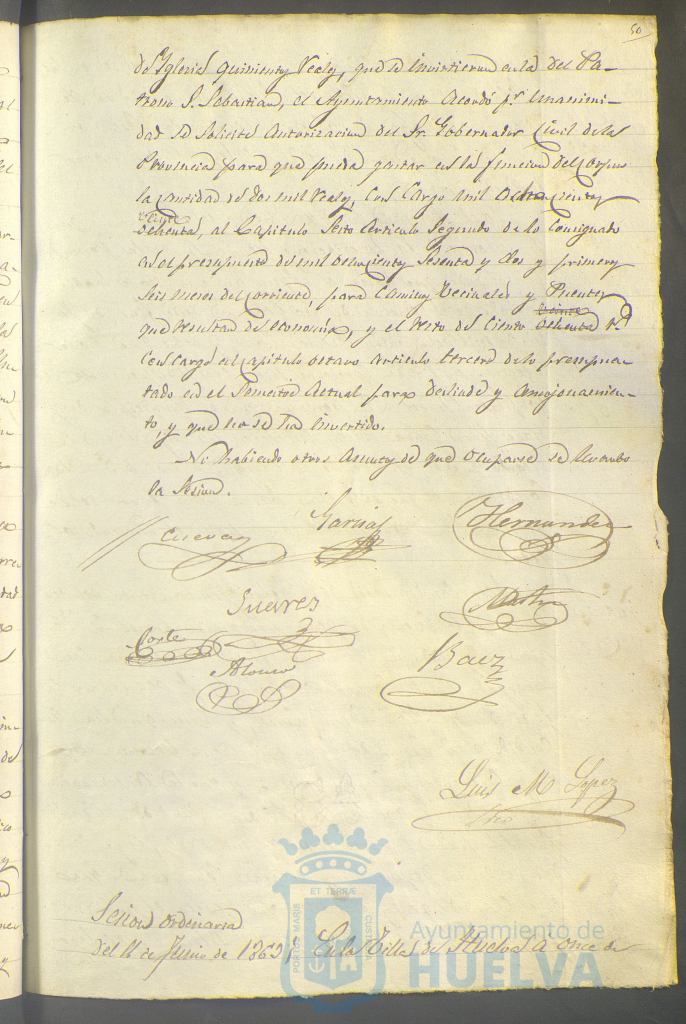 50
de Yglesia quinientos reales, que se invirtieron en la del Pa-
trono S. Sebastian, el Ayuntamiento acordó pr. unanimi-
dad se solicite autorizacion del Sr. Gobernador Civil de la
Provincia para que pueda gastar en la funcion del Corpus
la cantidad de dos mil reales, con cargo mil ochocientos
veinte
ochenta, al Capitulo Sesto Articulo Segundo de lo consignado
en el presupuesto de mil ochocientos sesenta y dos y primeros
seis meses del corriente, para Caminos vecinales y Puentes
que resultan de economia, y el resto de ciento ochenta rs.
veinte
con cargo al capitulo octavo articulo tercero de lo presupues-
tado en el Semestre actual para deslinde y amojonamien-
to, y que no se ha invertido.
No habiendo otros asuntos de que ocuparse se levantó
la Sesion.
Cuevas Garcia Hernandez
Suarez
Corte
Alonso Baez
Luis M. Lopez
Srio
Sesion ordinaria
del 11 de Junio de 1863, En la Villa de Huelva a once de
ET TERRÆ
PORTUS MARIS
CUSTODIA
Ayuntamiento de
HUELVA